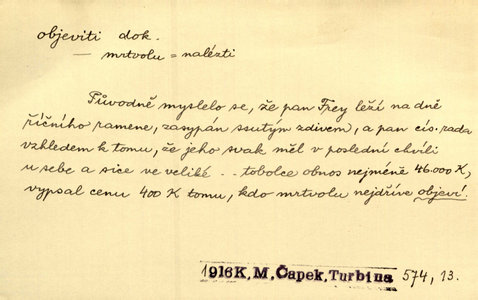 objeviti dok.
— mrtvolu = nalézti
Původně myslelo se, že pan Frey leží na dně
říčního ramene, zasypán ssutým zdivem, a pan cís. rada
vzhledem k tomu, že jeho svak měl v poslední chvíli
u sebe a sice ve veliké .. tobolce obnos nejméně 46.000 K,
vypsal cenu 400 K tomu, kdo mrtvolu nejdříve objeví.
1916 K. M. Čapek, Turbina 574, 13.